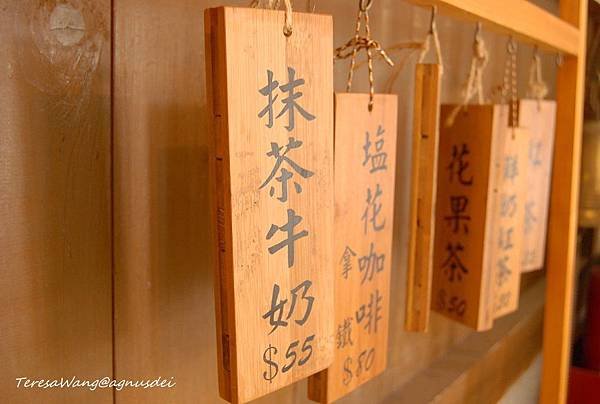 抹茶牛奶
$55
塩花咖啡
拿鐵
$80
花果茶
$50
鮮奶紅茶
紅茶
TeresaWang@agnusdei